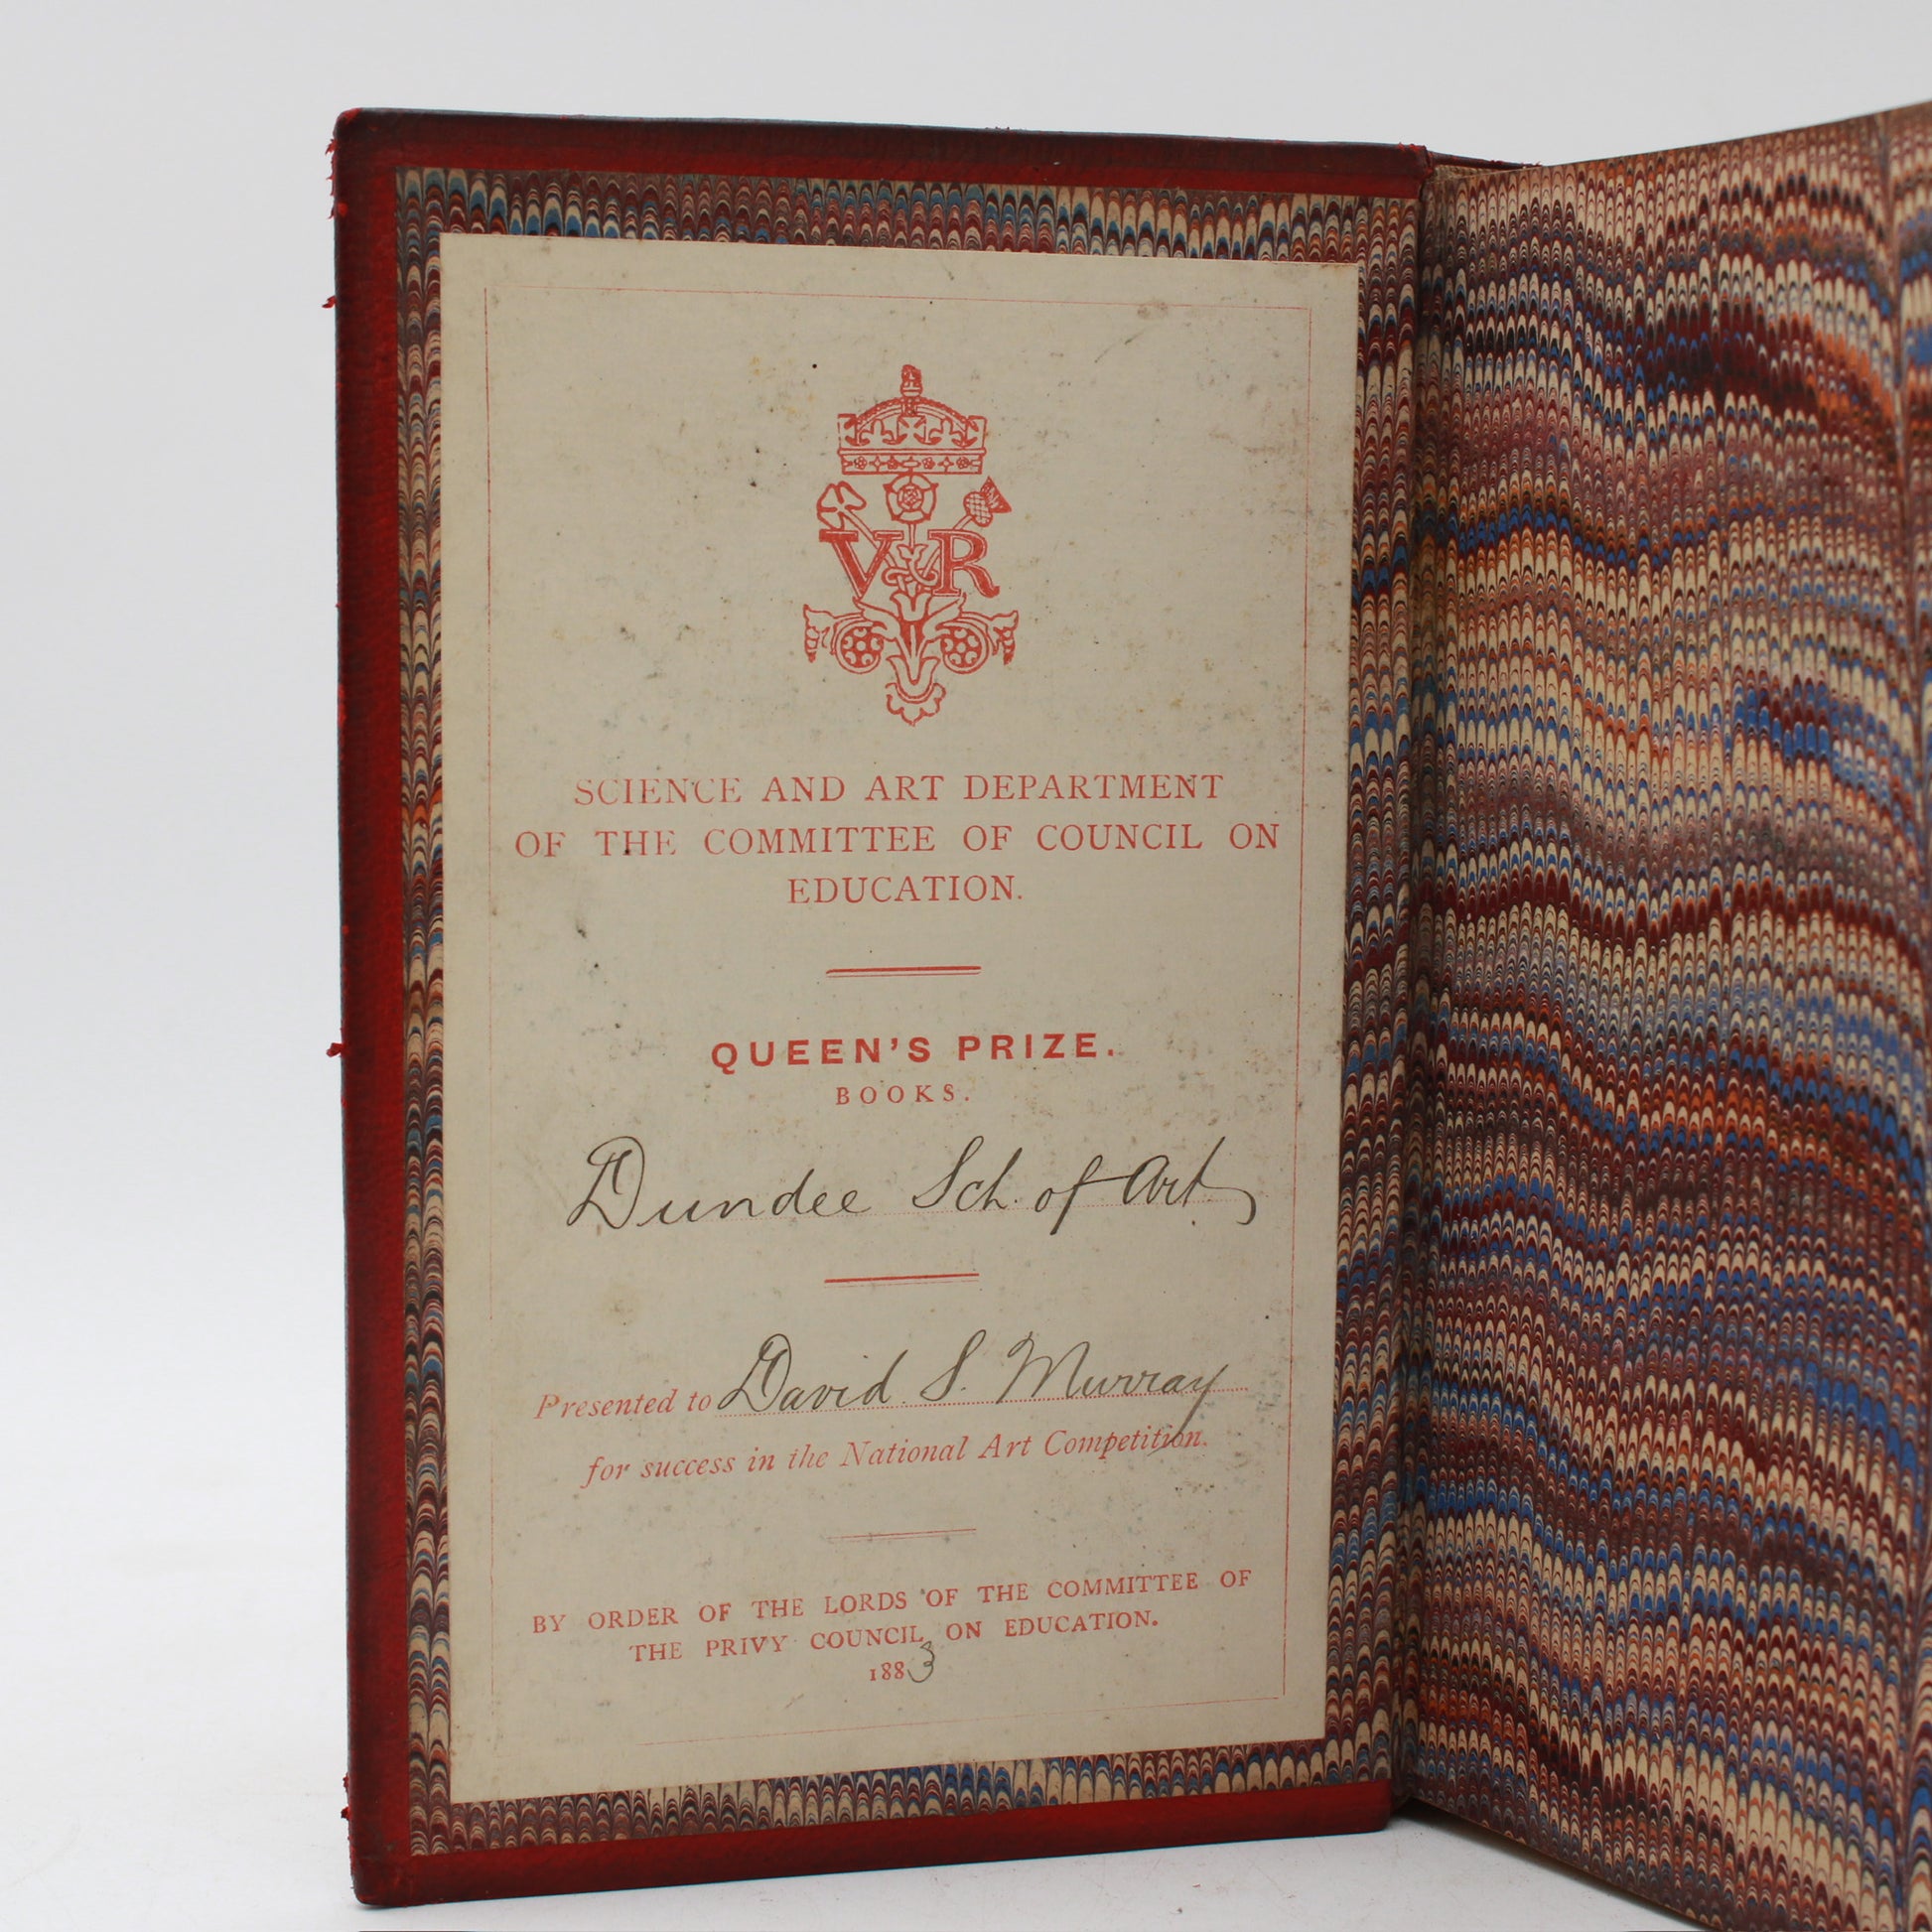 VR
SCIENCE AND ART DEPARTMENT
OF THE COMMITTEE OF COUNCIL ON
EDUCATION.
QUEEN'S PRIZE.
BOOKS.
Dundee Sch. of Art
Presented to David S. Murray
for success in the National Art Competition.
BY ORDER OF THE LORDS OF THE COMMITTEE OF
THE PRIVY COUNCIL ON EDUCATION.
1883